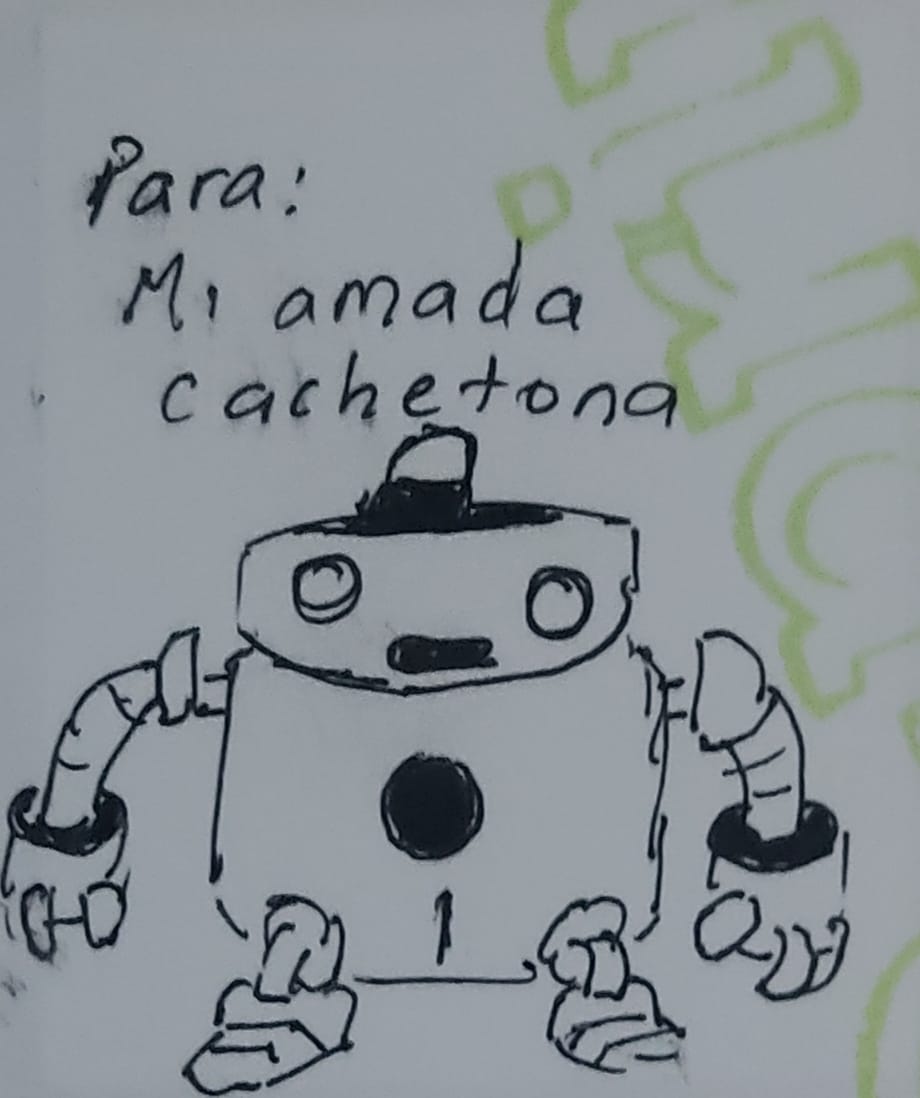 Para:
Mi amada
cachetona